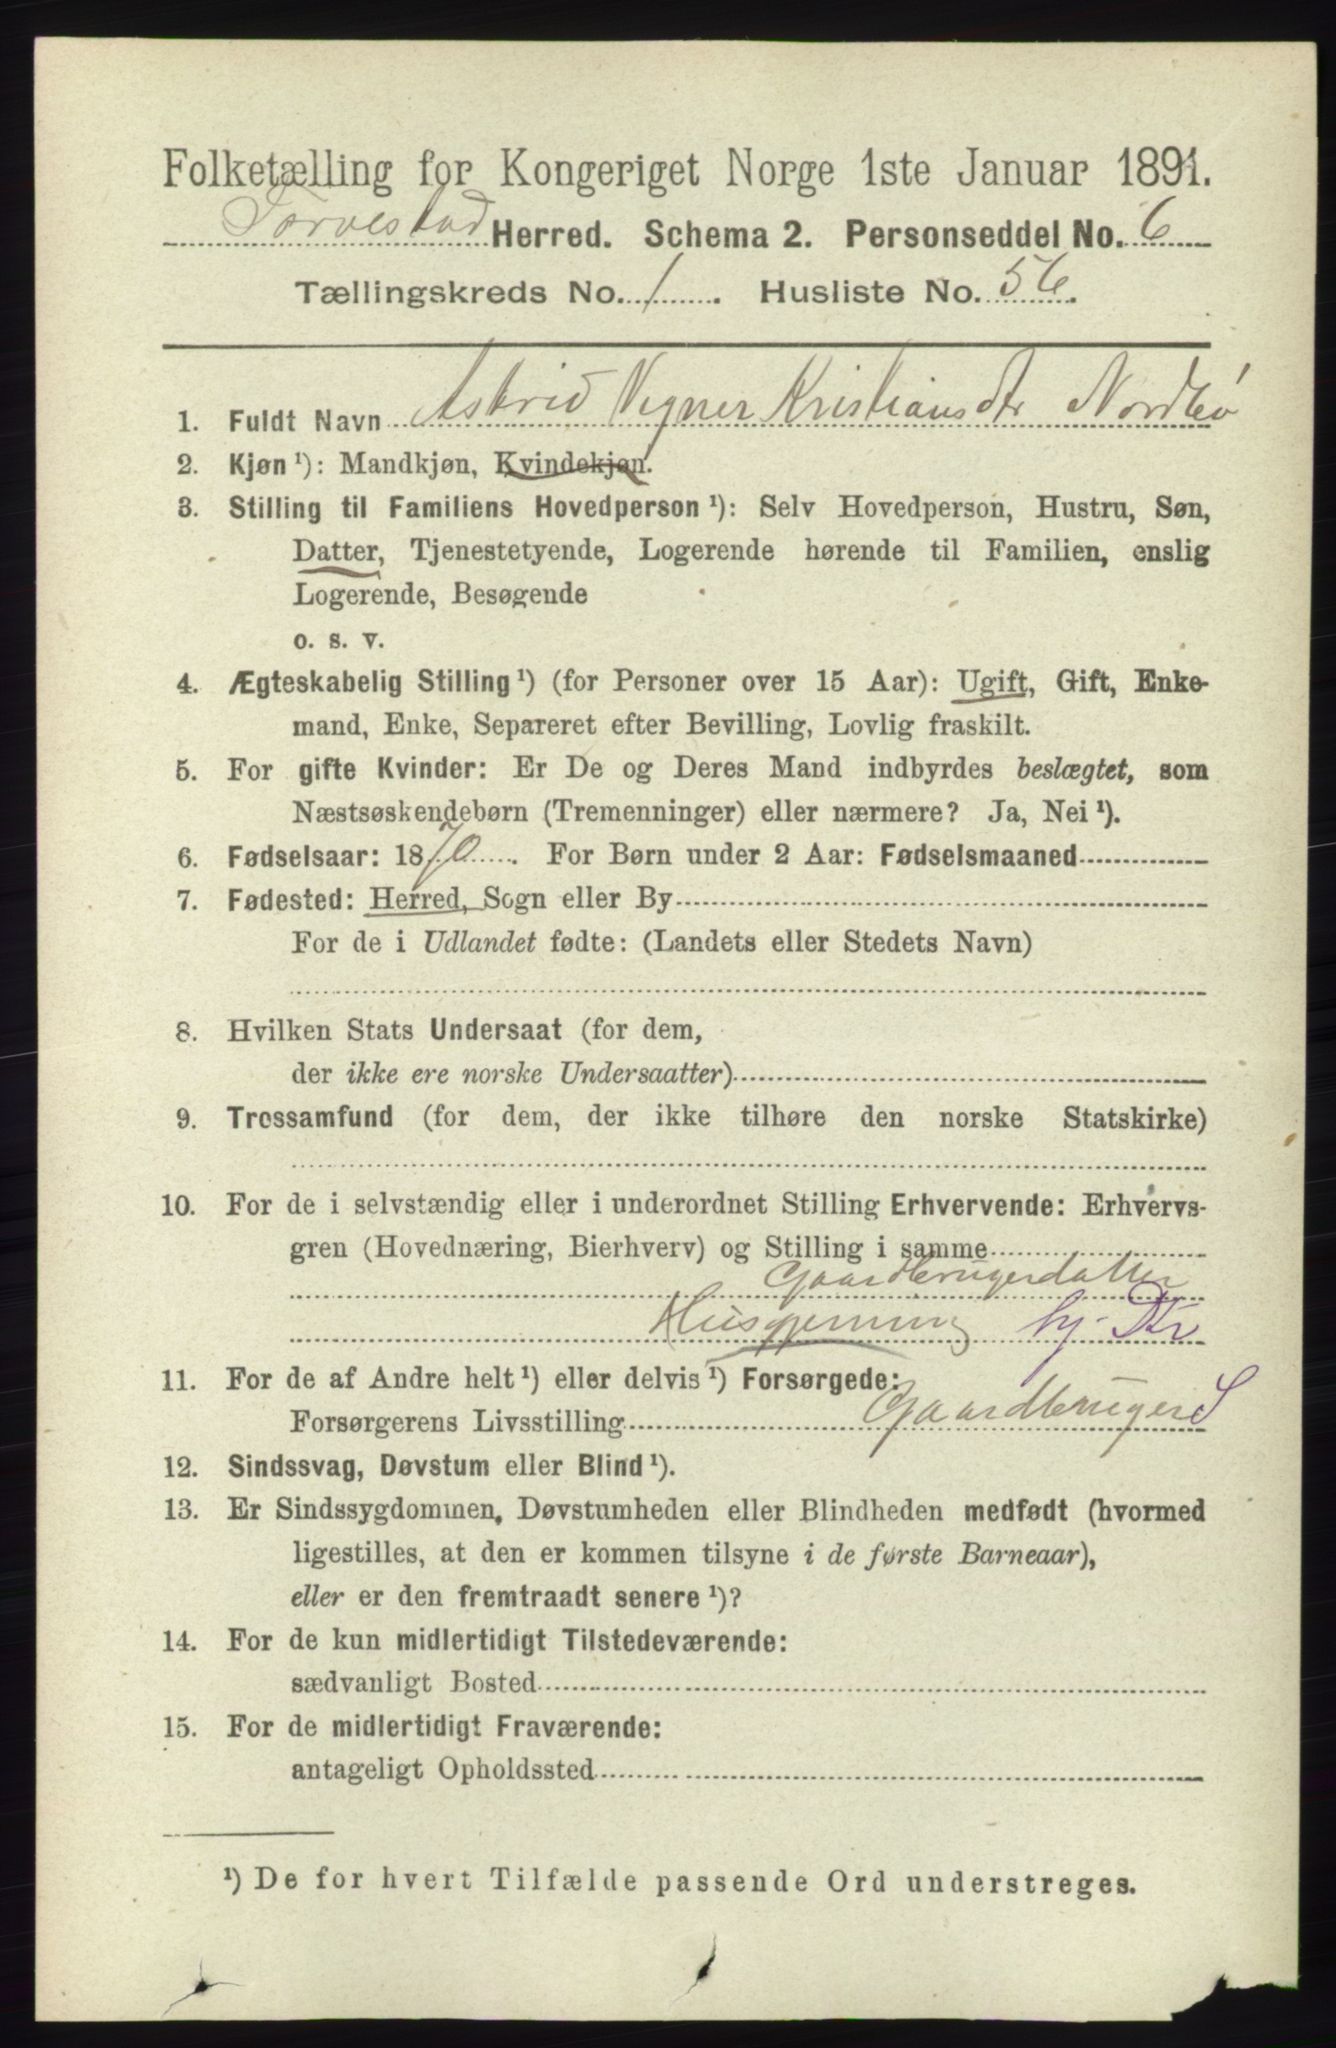 Folketælling for Kongeriget Norge 1ste Januar 1891.
Torvestad Herred. Schema 2. Personseddel No. 6
Tællingskreds No. 1. Husliste No. 56.
1. Fuldt Navn Astrid Vegner Kristiansdtr Nordbö
2. Kjøn ¹): Mandkjøn, Kvindekjøn.
3. Stilling til Familiens Hovedperson ¹): Selv Hovedperson, Hustru, Søn,
Datter, Tjenestetyende, Logerende hørende til Familien, enslig
Logerende, Besøgende
o. s. v.
4. Ægteskabelig Stilling ¹) (for Personer over 15 Aar): Ugift, Gift, Enke-
mand, Enke, Separeret efter Bevilling, Lovlig fraskilt.
5. For gifte Kvinder: Er De og Deres Mand indbyrdes beslægtet, som
Næstsøskendebørn (Tremenninger) eller nærmere? Ja, Nei ¹).
6. Fødselsaar: 1870. For Børn under 2 Aar: Fødselsmaaned
7. Fødested: Herred, Sogn eller By
For de i Udlandet fødte: (Landets eller Stedets Navn)
8. Hvilken Stats Undersaat (for dem,
der ikke ere norske Undersaatter)
9. Trossamfund (for dem, der ikke tilhøre den norske Statskirke)
10. For de i selvstændig eller i underordnet Stilling Erhvervende: Erhvervs-
gren (Hovednæring, Bierhverv) og Stilling i samme
Gaardbrugerdatter
Husgjerning hj. Dtr
11. For de af Andre helt ¹) eller delvis ¹) Forsørgede:
Forsørgerens Livsstilling Gaardbruger S
12. Sindssvag, Døvstum eller Blind ¹).
13. Er Sindssygdommen, Døvstumheden eller Blindheden medfødt (hvormed
ligestilles, at den er kommen tilsyne i de første Barneaar),
eller er den fremtraadt senere ¹)?
14. For de kun midlertidigt Tilstedeværende:
sædvanligt Bosted
15. For de midlertidigt Fraværende:
antageligt Opholdssted
¹) De for hvert Tilfælde passende Ord understreges.